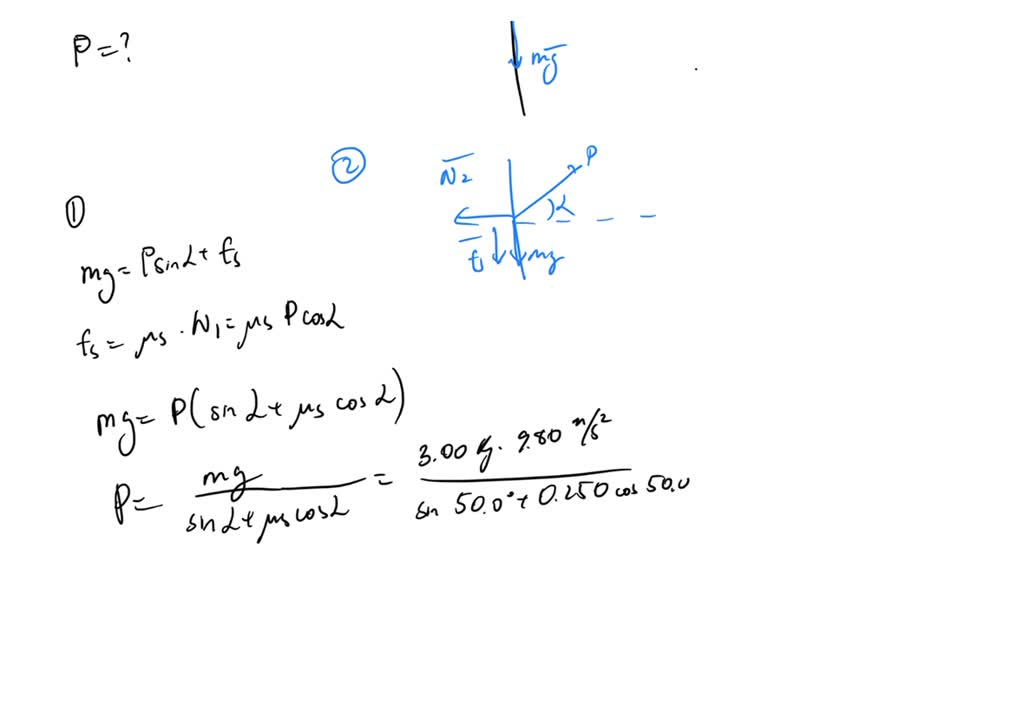 P=?
mg
②
N₂
P
α
①
f₁
mg
mg= P sinα+ fs
fs= μs · N₁= μs P cosα
mg= P( sin α+ μs cos α)
P= mg / (sin α+ μs cosα) = 3.00 kg · 9.80 m/s² / (sin 50.0°+ 0.250 cos 50.0